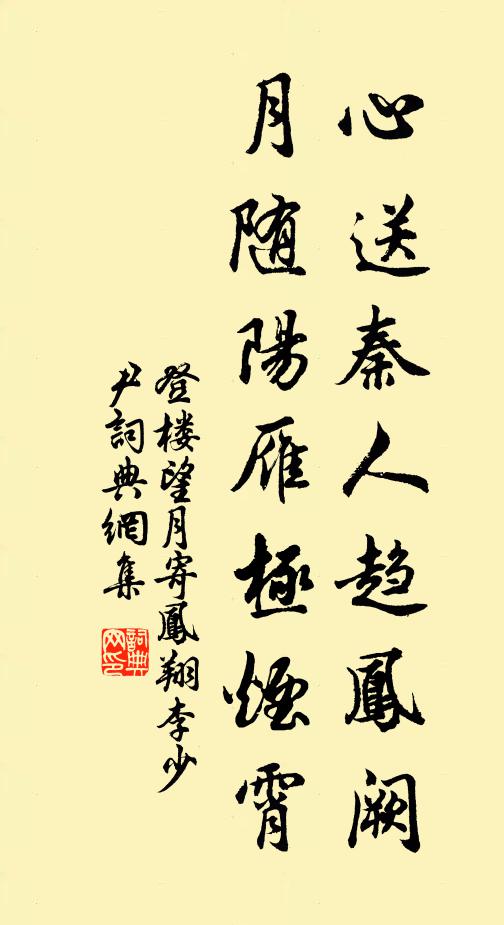 心送秦人趋鳳阙
月随陽雁極煙霄
登楼望月寄鳳翔李少
尹詞典網集
詞典网印